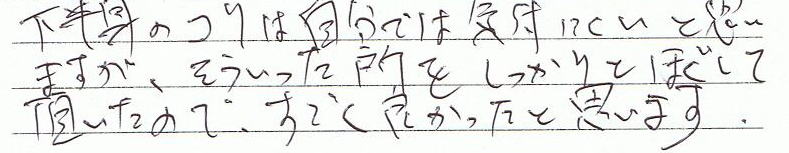 下半身のコリは自分では気付にくいと思い
ますが、そういった所をしっかりとほぐして
頂いたので、すごく良かったと思います.